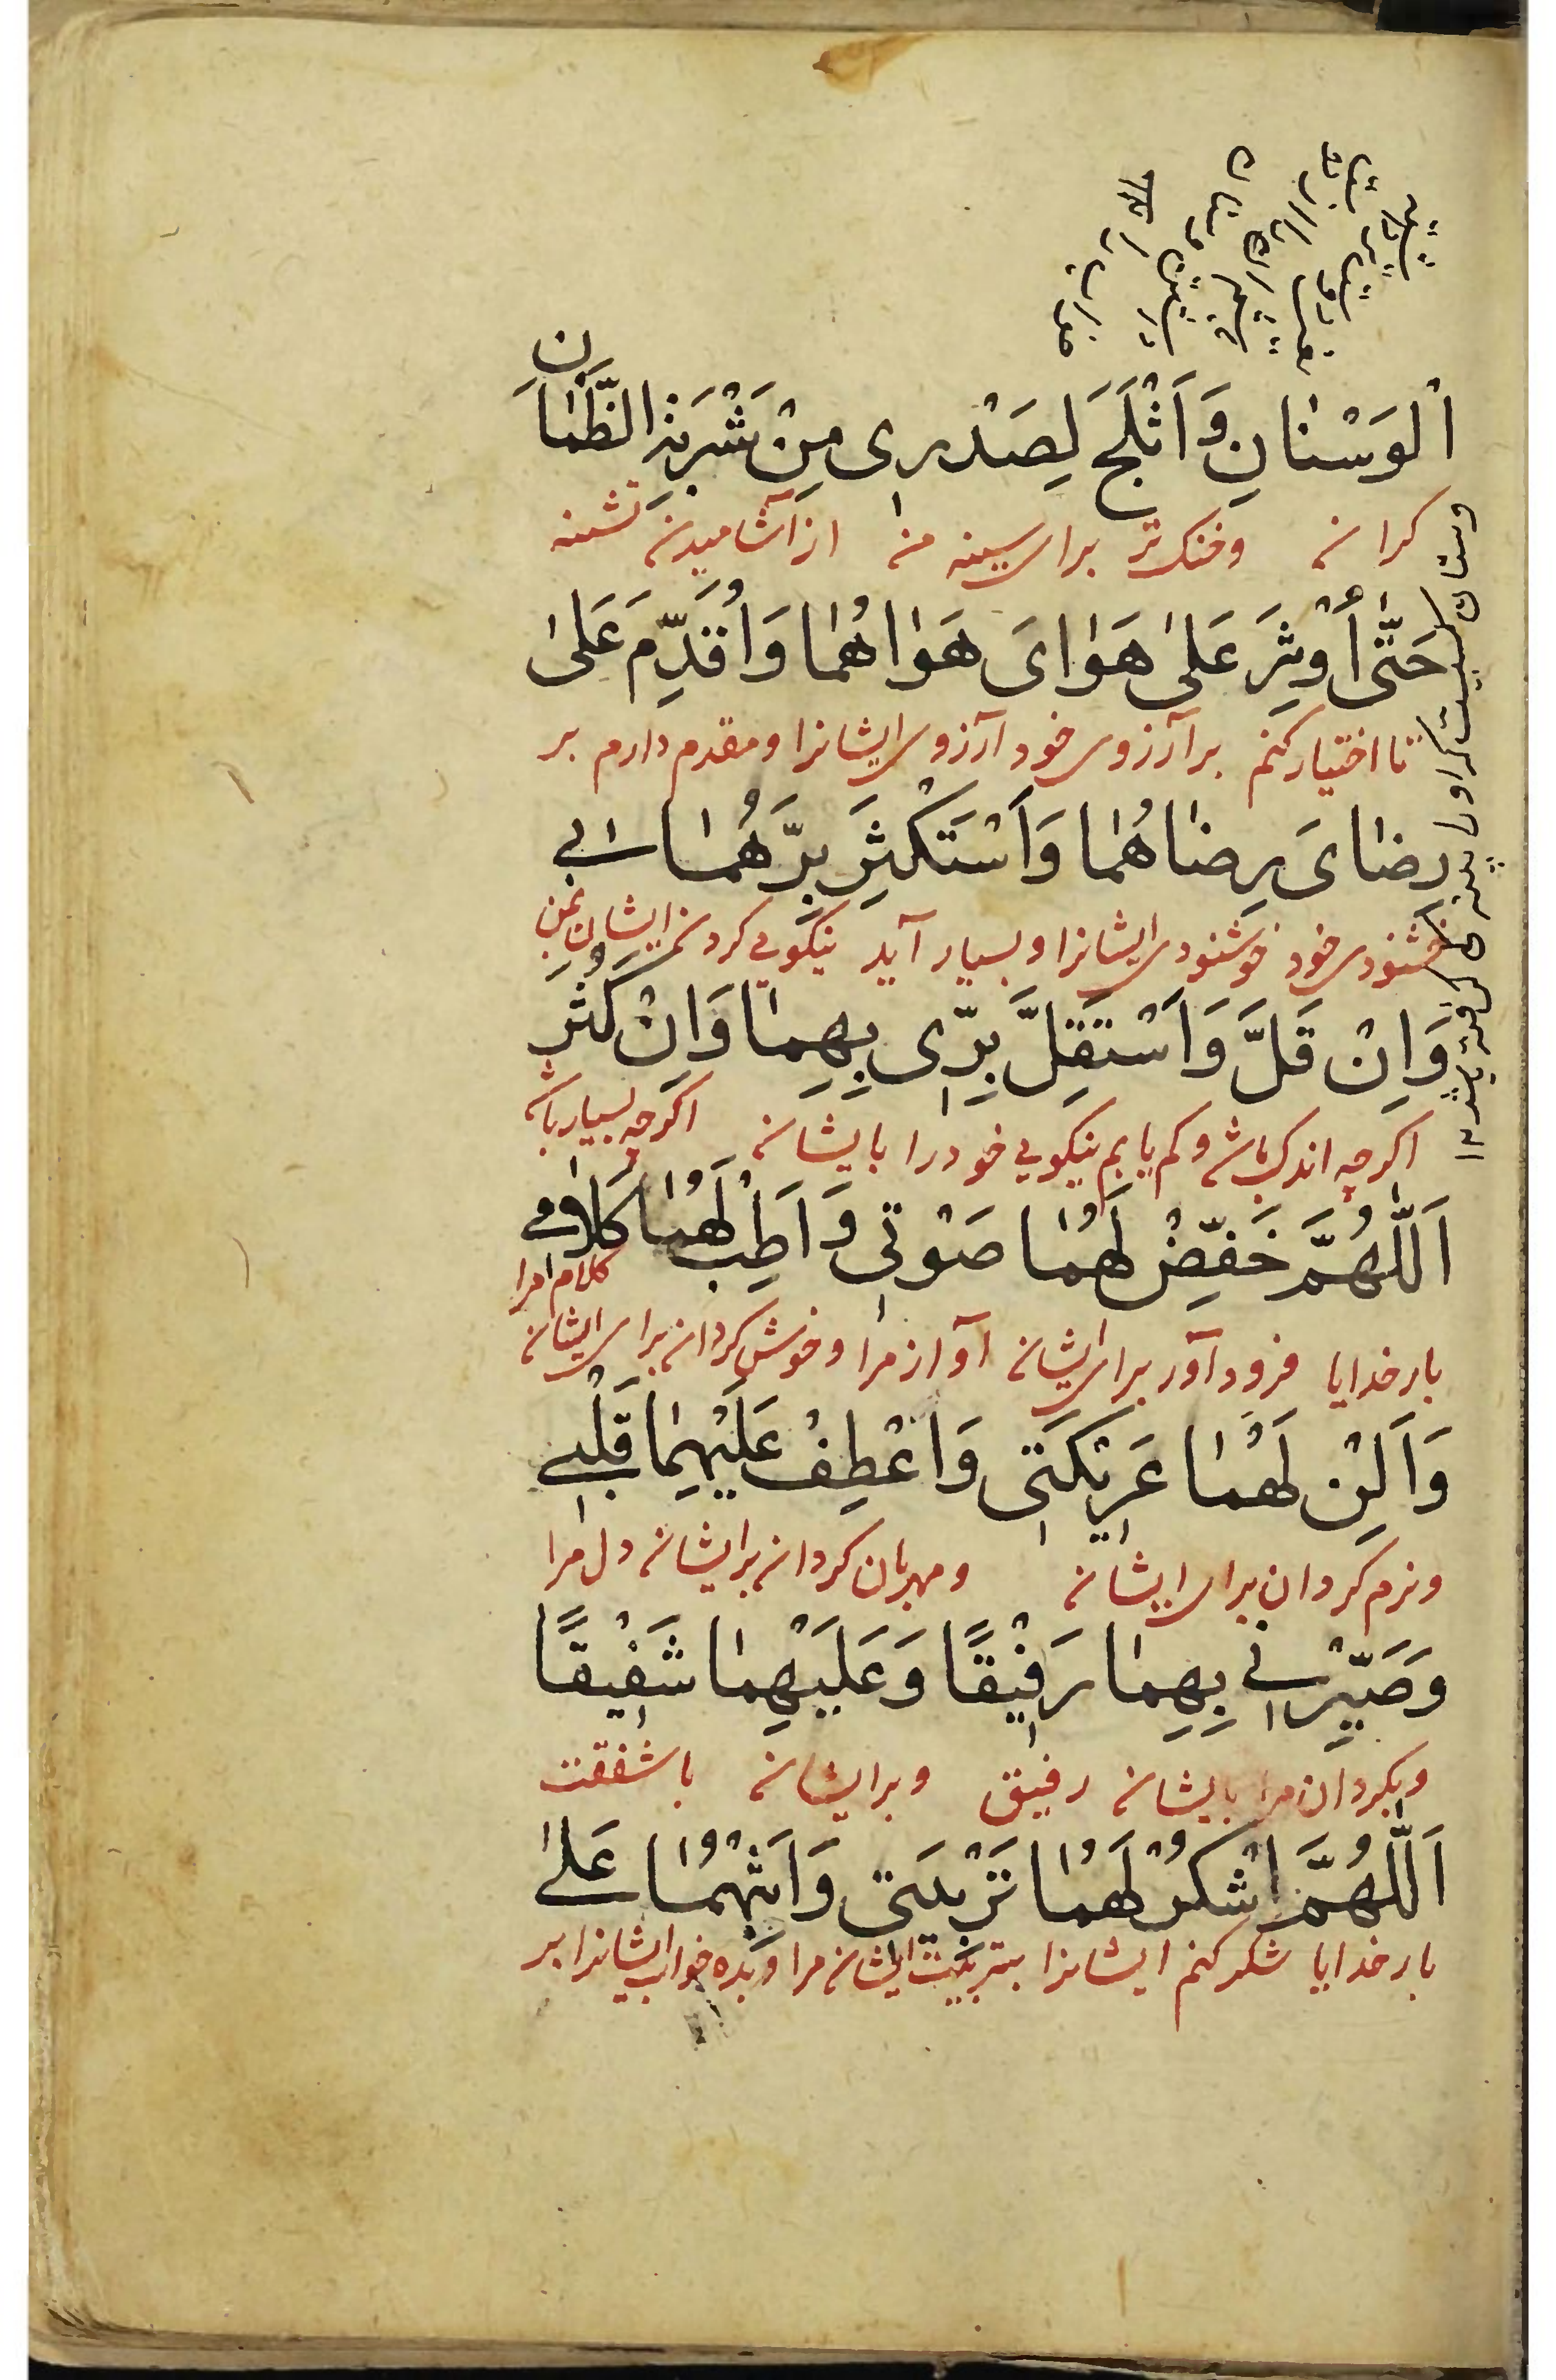 اَلْوَسْنانِ وَاَثْلَجَ لِصَدْرِی مِنْ شَرْبَةِ الظَّمْاٰنِ
کران وخنک تر برای سینه من از آشامیدن تشنه
حَتّٰی أُوْثِرَ عَلیٰ هَوٰایَ هَوٰاهُمٰا وَاُقَدِّمَ عَلیٰ
تا اختیار کنم بر آرزوی خود آرزوی ایشانرا ومقدم دارم بر
رِضٰایَ رِضٰاهُمٰا وَاَسْتَکْثِرَ بِرَّهُمٰا بی
خشنودی خود خوشنودی ایشانرا وبسیار آید نیکویی کردن ایشان بمن
وَاِنْ قَلَّ وَاَسْتَقِلَّ بِرِّی بِهِمٰا وَاِنْ کَثُرَ
اکرچه اندک باشد وکم یابم نیکویی خودرا بایشان اکرچه بسیار باشد
اَللّٰهُمَّ خَفِّضْ لَهُمٰا صَوْتِی وَاَطِبْ لَهُمٰا کَلٰامِی
بار خدایا فرود آور برای ایشان آواز مرا وخوش کردان برای ایشان کلام مرا
وَاَلِنْ لَهُمٰا عَرِیْکَتِی وَاعْطِفْ عَلَیْهِمٰا قَلْبِی
ونرم کردان برای ایشان ومهربان کردان برایشان دل مرا
وَصَیِّرْنِی بِهِمٰا رَفِیْقًا وَعَلَیْهِمٰا شَفِیْقًا
وبکردان مرا بایشان رفیق وبرایشان باشفقت
اَللّٰهُمَّ اشْکُرْ لَهُمٰا تَرْبِیَتِی وَاَثِبْهُمٰا عَلیٰ
بار خدایا شکر کنم ایشانرا بتربیت ایشان مرا وبده خواب ایشانرا بر